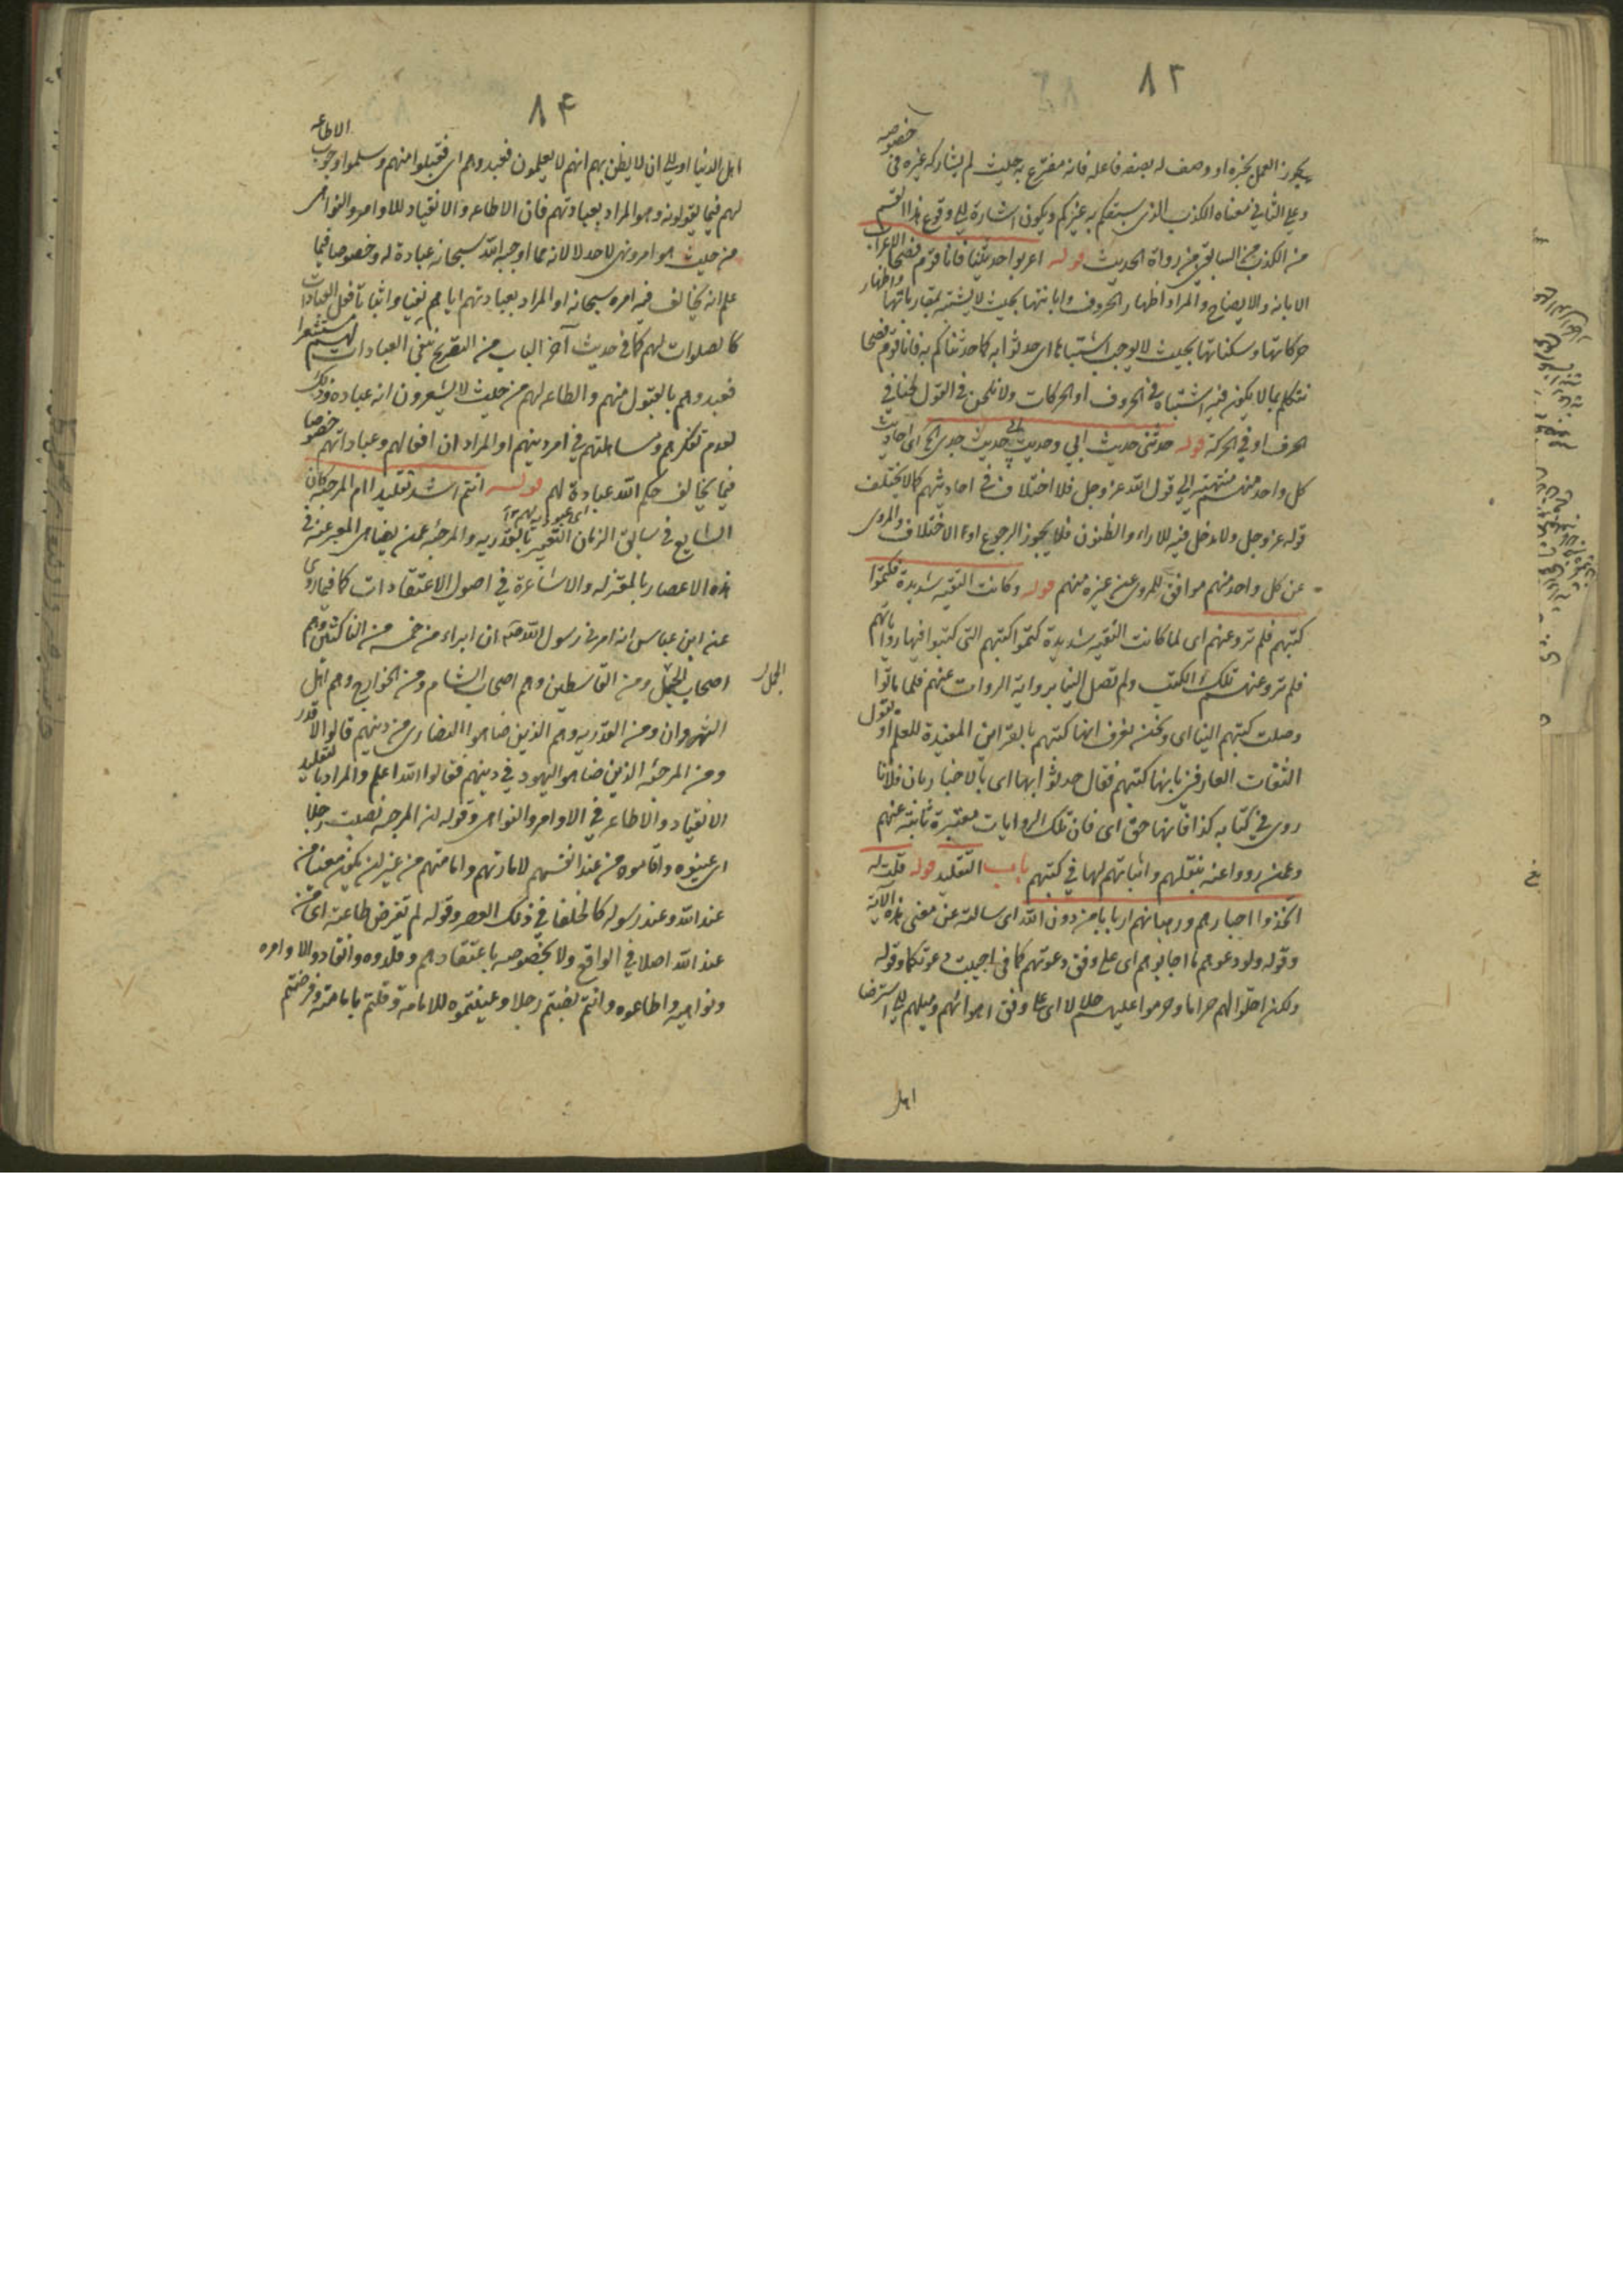 ٨٢
يجوز العمل بخبره او وصف له بصفه فاعله فانه مفترع به حليث لم يشاركه غيره في خصوصه
وعلي الثاني معناه الكذب الذي سبقكم به غيركم ويكون اشارة الي وقوع هذا القسم
من الكذب من السابقين من رواة الحديث قوله اعربوا حديثنا فانا قوم فصحا الاعراب
الابانه والايضاح والمراد اظهار الحروف وابانتها بحيث لا يشتبه بمقارباتها واظهار
حركاتها وسكناتها بحيث لا يوجب اشتباها اى حدثوا به كما حدثناكم به فانا قوم فصحا
نتكلم بما لا يكون فيه اشتباه في الحروف او الحركات ولا نلحن في القول لحنا في
الحرف او في الحركة قوله حديثى حديث ابي وحديث ابي حديث جدي الخ اى احاديث
كل واحد منهم منتهيه الي قول الله عز وجل فلا اختلاف في احاديثهم كما لا يختلف
قوله عز وجل ولا مدخل فيه للاراء والظنون فلا يجوز الرجوع اوعا الاختلاف والمروى
عن كل واحد منهم موافق للمروى عن غيره منهم قوله وكانت التقيه شديدة فكتموا
كتبهم فلم تروعنهم اى لما كانت التقيه شديدة كتموا كتبهم التى كتبوا فيها رواياتهم
فلم تروعنهم تلك الكتب ولم تصل الينا برواية الروات عنهم فلما ماتوا
وصلت كتبهم الينا اى ونحن نعرف انها كتبهم بالقراين المفيدة للعلم او بقول
الثقات العارفين بانها كتبهم فقال حدثوا بها اى بالاخبار بان فلانا
روى في كتابه كذا فانها حق اى فان تلك الروايات معتبرة ثابته عنهم
وعمن رووا عنه بنقلهم واثباتهم لها في كتبهم باب التقليد قوله قلت له
اتخذوا احبارهم ورهبانهم اربابا من دون الله اى سالته عن معنى هذه الآية
وقوله ولو دعوهم ما اجابوهم اى على وفق دعوتهم كما في اجيبت دعوتكما وقوله
ولكن احلوا لهم حراما وحرموا عليهم حلالا اى على وفق اهوائهم وميلهم الي استرضا
اهل
٨٤
اهل الدنيا اوبلي ان لا يظن بهم انهم لا يعلمون فعبدوهم اى فقبلوا منهم وسلموا وجوب الاطاعه
لهم فيما يقولونه وهو المراد بعبادتهم فان الاطاعه والانقياد للاوامر والنواهى
من حيث هو امر ونهى لاحد لا لانه مما اوجبه الله سبحانه عبادة له وخصوصا فيما
علم انه يخالف فيه امره سبحانه او المراد بعبادتهم اياهم نفيا واثباتا فعل العبادات
كالصلوات لهم كما في حديث آخر الباب من التصريح بنفى العبادات لهم مستشعرا
فعبدوهم بالقبول منهم والطاعه لهم من حيث لا يشعرون انه عباده وذلك
لعدم تفكرهم ومساهلتهم في امر دينهم او المراد ان افعالهم وعباداتهم خصوصا
فيما يخالف حكم الله عبادة لهم قوله انتم اشد تقليدا ام المرجئه كان
اى عبوديه لهم ١٢
الشايع في سابق الزمان التعبير بالقدريه والمرجئه عمن يضاهى المعبر عنه في
هذه الاعصار بالمعتزله والاشاعرة في اصول الاعتقادات كما فيما روى
عنه ابن عباس انه امرنى رسول الله ص ان ابراء من خمسه من الناكثين وهم
اصحاب الجمل ومن القاسطين وهم اصحاب الشام ومن الخوارج وهم اهل
الجمل
النهروان ومن القدريه وهم الذين ضاهوا النصارى من دينهم قالوا لا قدر
ومن المرجئه الذين ضاهوا اليهود في دينهم فقالوا الله اعلم والمراد بالتقليد
الانقياد والاطاعه في الاوامر والنواهى وقوله ان المرجئه نصبت رجلا
اى عينوه واقاموه من عند انفسهم لامارتهم وامامتهم من غير ان يكون معينا من
عند الله وعند رسوله كالخلفا في ذلك العصر وقوله لم تفرض طاعته اى من
عند الله اصلا في الواقع ولا بخصوصه باعتقادهم وقلدوه وانقادوا لاوامره
ونواهيه واطاعوه وانتم نصبتم رجلا وعينتموه للامامه وقلتم بامامته وفرضتم